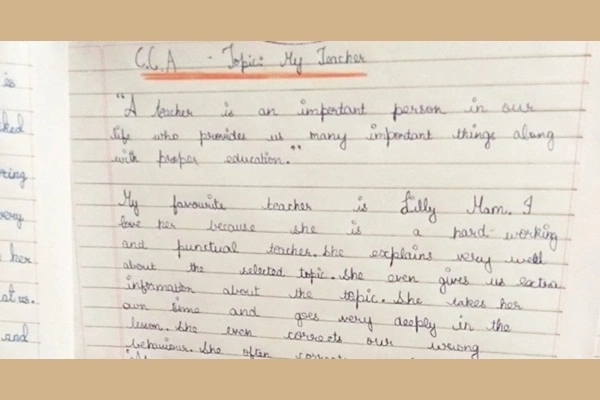 C.C.A - Topic: My Teacher
"A teacher is an important person in our
life who provides us many important things along
with proper education."
My favourite teacher is Lilly Mam. I
love her because she is a hard-working
and punctual teacher. She explains very well
about the selected topic. She even gives us extra
information about the topic. She takes her
own time and goes very deeply in the
lesson. She even corrects our wrong
behaviour. She often
is
ring
her
at us.
and